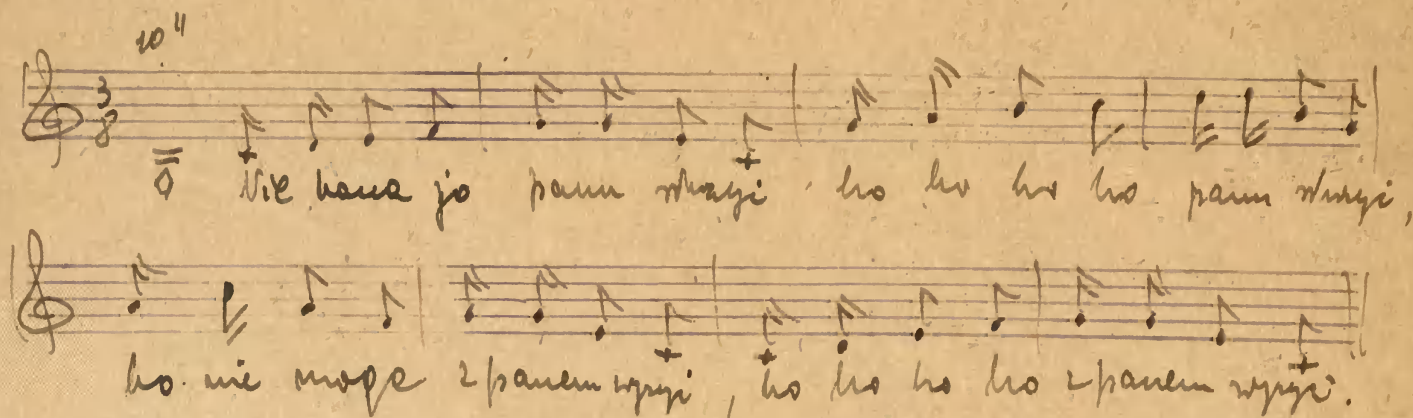 10"
3
8
Nie bana jo panu służyć bo bo bo bo panu służyć,
bo nie moga z panem wyżyć, bo bo bo bo z panem wyżyć.